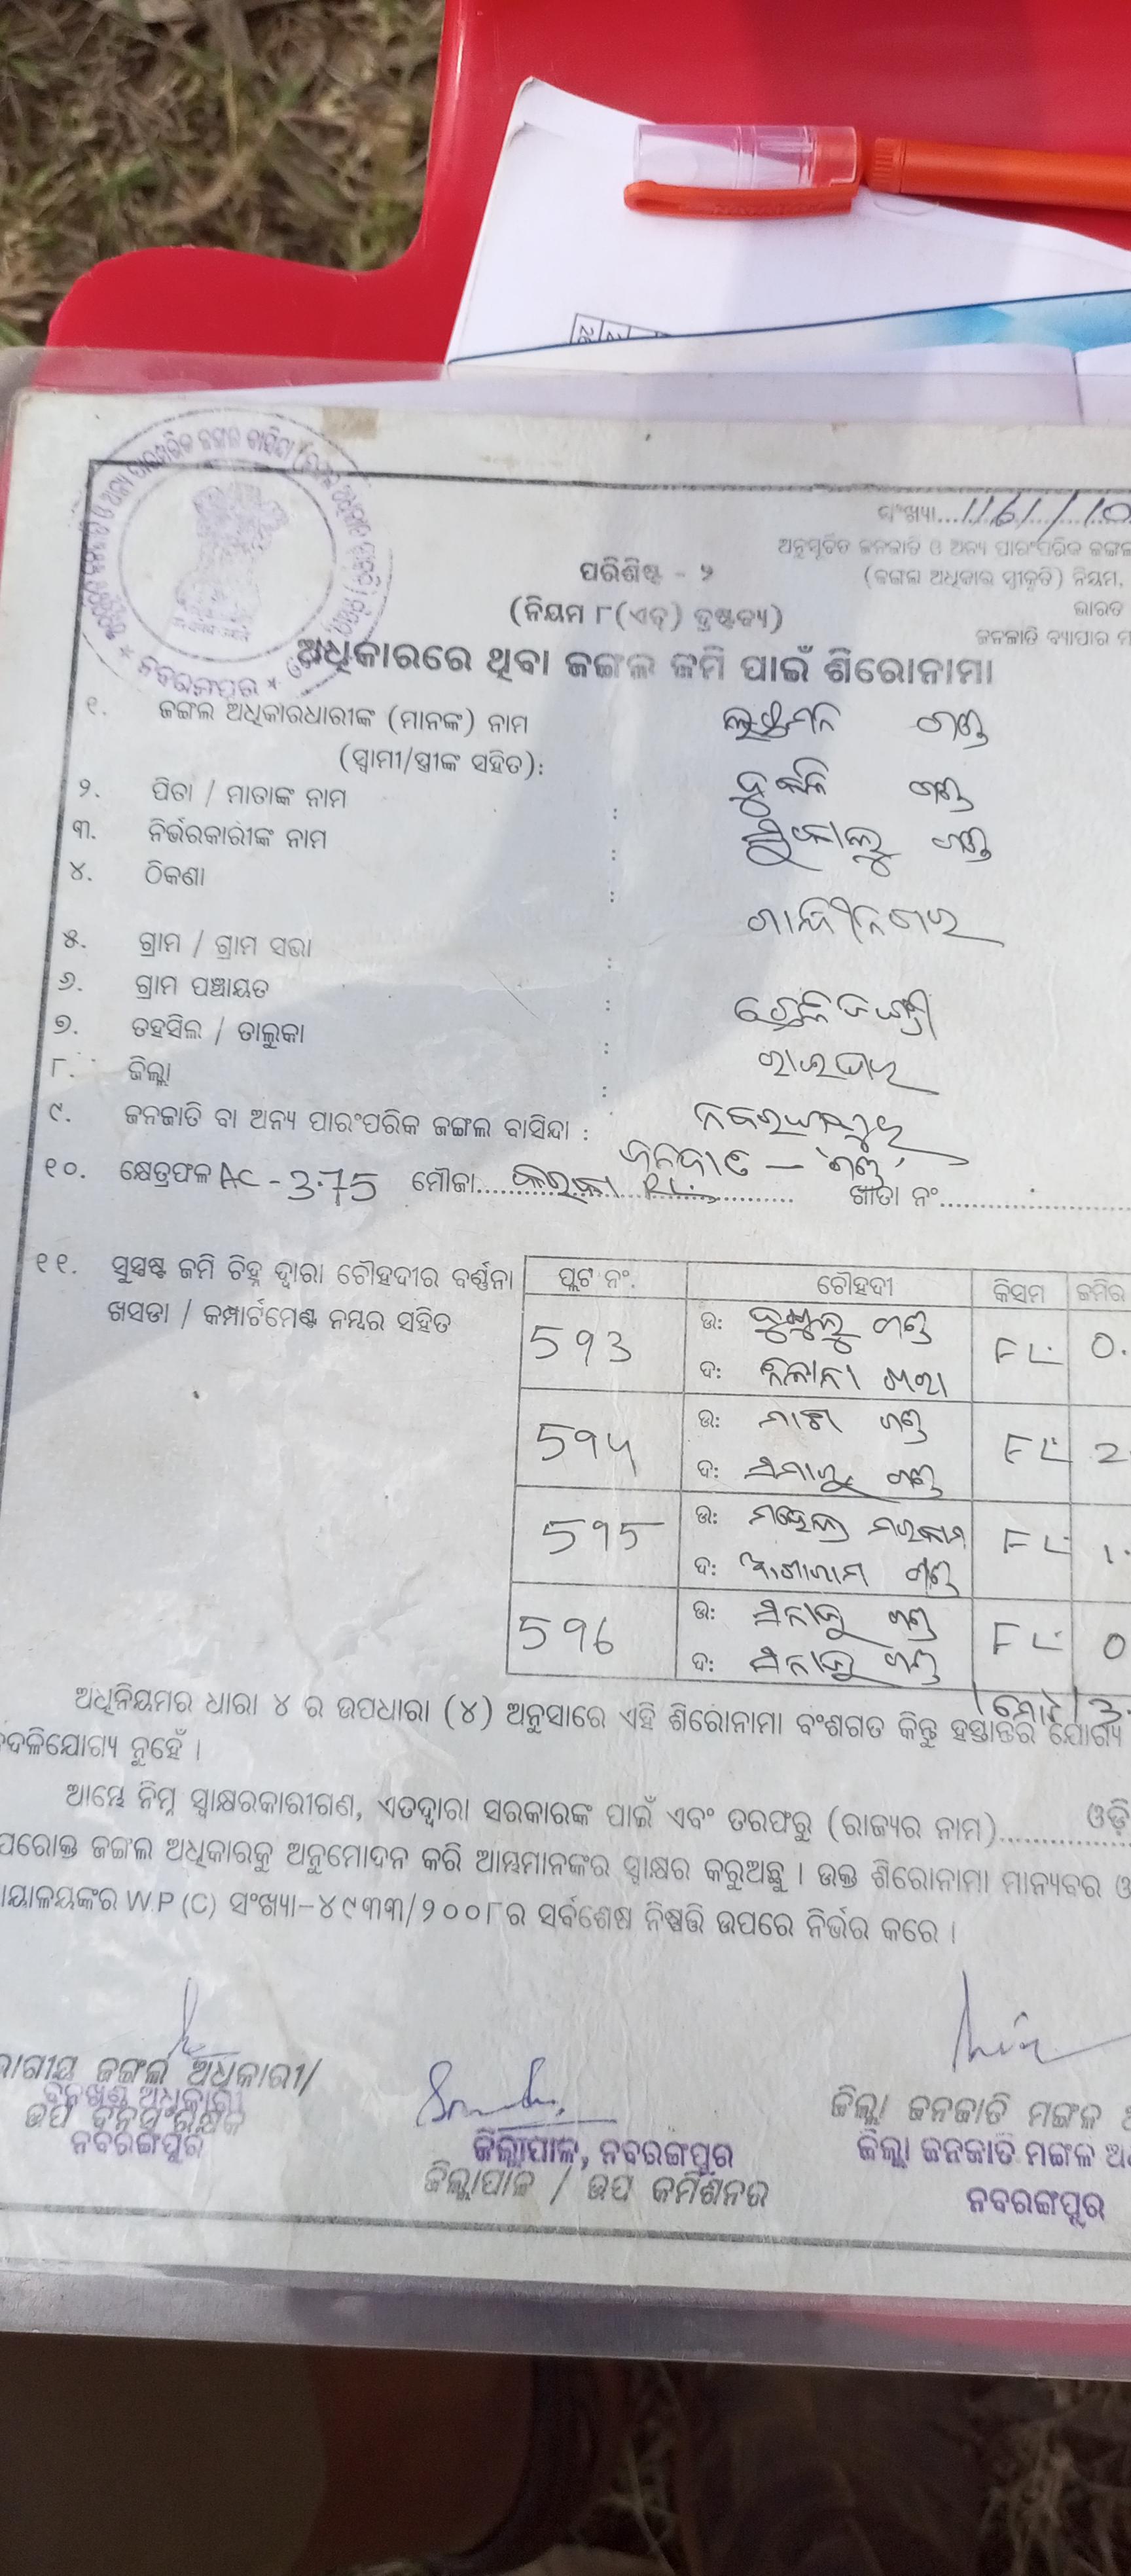 ସଂଖ୍ୟା...1161/10
ଅନୁସୂଚିତ ଜନଜାତି ଓ ଅନ୍ୟ ପାରଂପରିକ ଜଙ୍ଗଲ
ପରିଶିଷ୍ଟ - ୨
(ଜଙ୍ଗଲ ଅଧିକାର ସ୍ୱୀକୃତି) ନିୟମ,
(ନିୟମ ୮(ଏଚ୍) ଦ୍ରଷ୍ଟବ୍ୟ)
ଭାରତ
ଜନଜାତି ବ୍ୟାପାର ମ
ନବରଙ୍ଗପୁର
ଅଧିକାରରେ ଥିବା ଜଙ୍ଗଲ ଜମି ପାଇଁ ଶିରୋନାମା
୧. ଜଙ୍ଗଲ ଅଧିକାରଧାରୀଙ୍କ (ମାନଙ୍କ) ନାମ ଲକ୍ଷ୍ମନ ଗଣ୍ଡ
(ସ୍ୱାମୀ/ସ୍ତ୍ରୀଙ୍କ ସହିତ):
୨. ପିତା / ମାତାଙ୍କ ନାମ : ଗଣ୍ଡ
୩. ନିର୍ଭରକାରୀଙ୍କ ନାମ : ଗଣ୍ଡ
୪. ଠିକଣା :
ଗାନ୍ଧୀନଗର
୫. ଗ୍ରାମ / ଗ୍ରାମ ସଭା :
୬. ଗ୍ରାମ ପଞ୍ଚାୟତ :
୭. ତହସିଲ / ତାଲୁକା : ରାଇଘର
୮. ଜିଲ୍ଲା : ନବରଙ୍ଗପୁର
୯. ଜନଜାତି ବା ଅନ୍ୟ ପାରଂପରିକ ଜଙ୍ଗଲ ବାସିନ୍ଦା : ଜନଜାତି - ଗଣ୍ଡ
୧୦. କ୍ଷେତ୍ରଫଳ AC - 3.75 ମୌଜା.... RF. ଖାତା ନଂ......
୧୧. ସୁସ୍ପଷ୍ଟ ଜମି ଚିହ୍ନ ଦ୍ୱାରା ଚୌହଦୀର ବର୍ଣ୍ଣନା
ଖସଡା / କମ୍ପାର୍ଟମେଣ୍ଟ ନମ୍ବର ସହିତ
ପ୍ଲଟ ନଂ. ଚୌହଦୀ କିସମ ଜମିର
593 ଉ: ଗଣ୍ଡ FL 0.
ଦ:
594 ଉ: ଗଣ୍ଡ FL 2.
ଦ: ଗଣ୍ଡ
595 ଉ: ମହେନ୍ଦ୍ର ମରକାମ FL 1.
ଦ: ଗଣ୍ଡ
596 ଉ: ଗଣ୍ଡ FL 0
ଦ: ଗଣ୍ଡ
ମୋଟ 3.
ଅଧିନିୟମର ଧାରା ୪ ର ଉପଧାରା (୪) ଅନୁସାରେ ଏହି ଶିରୋନାମା ବଂଶଗତ କିନ୍ତୁ ହସ୍ତାନ୍ତର ଯୋଗ୍ୟ
ବଦଳିଯୋଗ୍ୟ ନୁହେଁ ।
ଆମ୍ଭେ ନିମ୍ନ ସ୍ୱାକ୍ଷରକାରୀଗଣ, ଏତଦ୍ୱାରା ସରକାରଙ୍କ ପାଇଁ ଏବଂ ତରଫରୁ (ରାଜ୍ୟର ନାମ)........ ଓଡ଼ି
ପରୋକ୍ତ ଜଙ୍ଗଲ ଅଧିକାରକୁ ଅନୁମୋଦନ କରି ଆମ୍ଭମାନଙ୍କର ସ୍ୱାକ୍ଷର କରୁଅଛୁ । ଉକ୍ତ ଶିରୋନାମା ମାନ୍ୟବର ଓ
ାୟାଳୟଙ୍କର W.P (C) ସଂଖ୍ୟା-୪୯୩୩/୨୦୦୮ର ସର୍ବଶେଷ ନିଷ୍ପତ୍ତି ଉପରେ ନିର୍ଭର କରେ ।
ଭାଗୀୟ ଜଙ୍ଗଲ ଅଧିକାରୀ/
ବନଖଣ୍ଡ ଅଧିକାରୀ
ଉପ ବନସଂରକ୍ଷକ
ନବରଙ୍ଗପୁର
ଜିଲ୍ଲାପାଳ, ନବରଙ୍ଗପୁର
ଜିଲ୍ଲାପାଳ / ଉପ କମିଶନର
ଜିଲ୍ଲା ଜନଜାତି ମଙ୍ଗଳ ଅ
ଜିଲ୍ଲା ଜନଜାତି ମଙ୍ଗଳ ଅ
ନବରଙ୍ଗପୁର